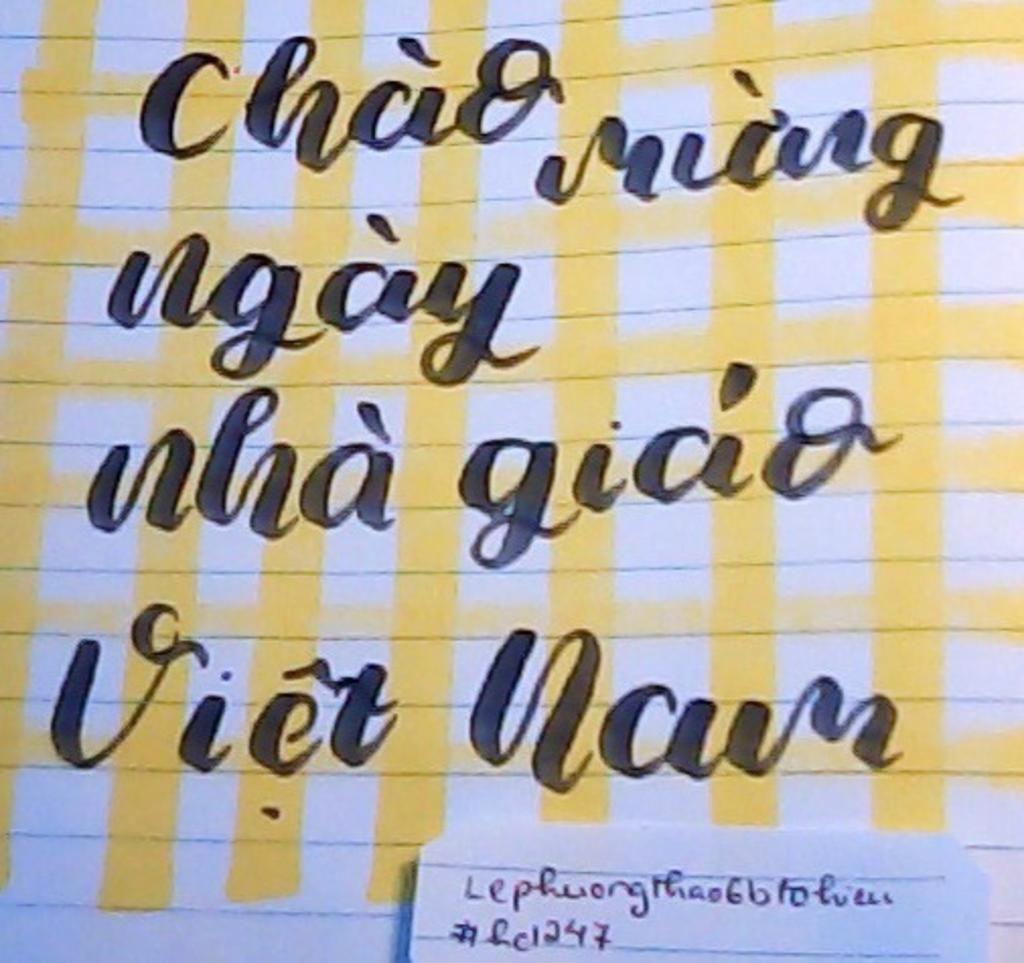 Chào mừng
ngày
nhà giáo
Việt Nam
Lephuongthao6btohieu
#hc1247